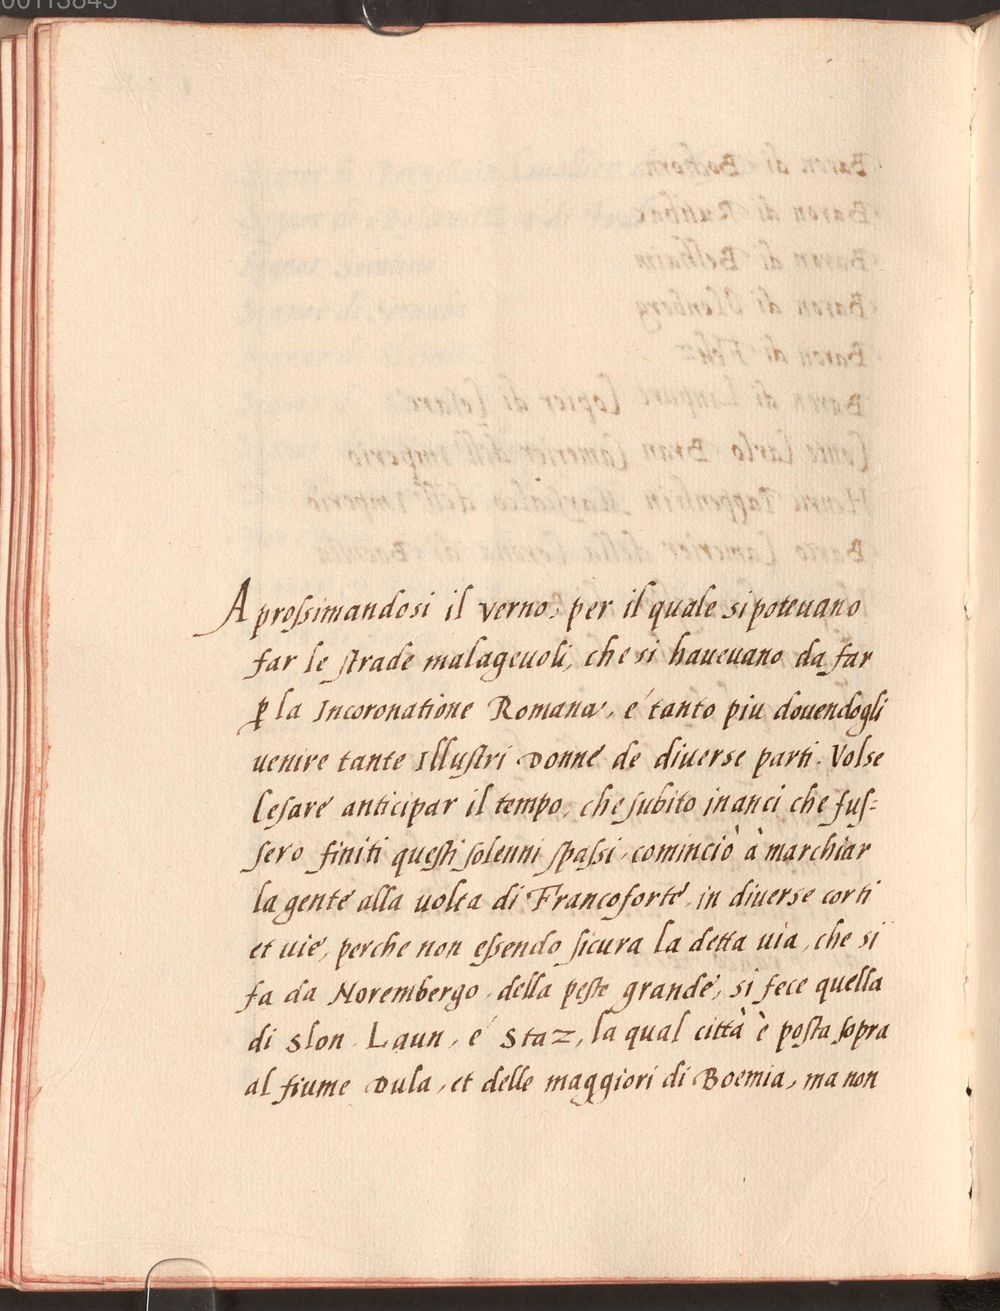 00113845
Aprossimandosi il verno, per il quale si poteuano
far le strade malageuoli, che si haueuano da far
ꝑ la Incoronatione Romana, é tanto piu douendogli
uenire tante Illustri Donne de diuerse parti. Volse
Cesare anticipar il tempo, che subito inanci che fus=
sero finiti questi solenni spassi, cominciò à marchiar
la gente alla uolta di Francoforte, in diuerse corti
et uie, perche non essendo sicura la detta uia, che si
fa da Norembergo, della peste grande, si fece quella
di Slon. Laun, é Staz, la qual città è posta sopra
al fiume Dula, et delle maggiori di Boemia, ma non